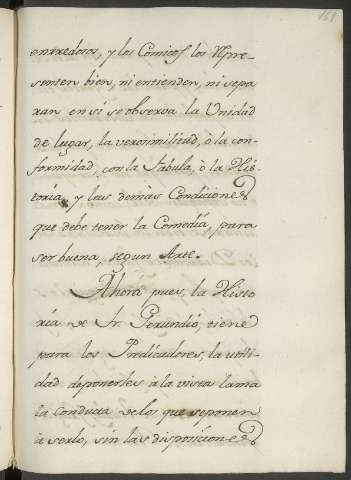 161
enredosos, y los Comicos los Repre-
senten bien, ni entienden, ni sepa
ran en si se observa la Unidad
de lugar, la verosimilitud, ò la con-
formidad, con la Fabula, ò la His-
toria, y las demàs Condiciones
que debe tener la Comedia, para
ser buena, segun Arte.
Ahora pues, la Histo
ria de Fr. Gerundio, tiene
para los Predicadores, la utili-
dad de ponerles à la vista la ma
la conducta de los que se ponen
à serlo, sin las disposiciones